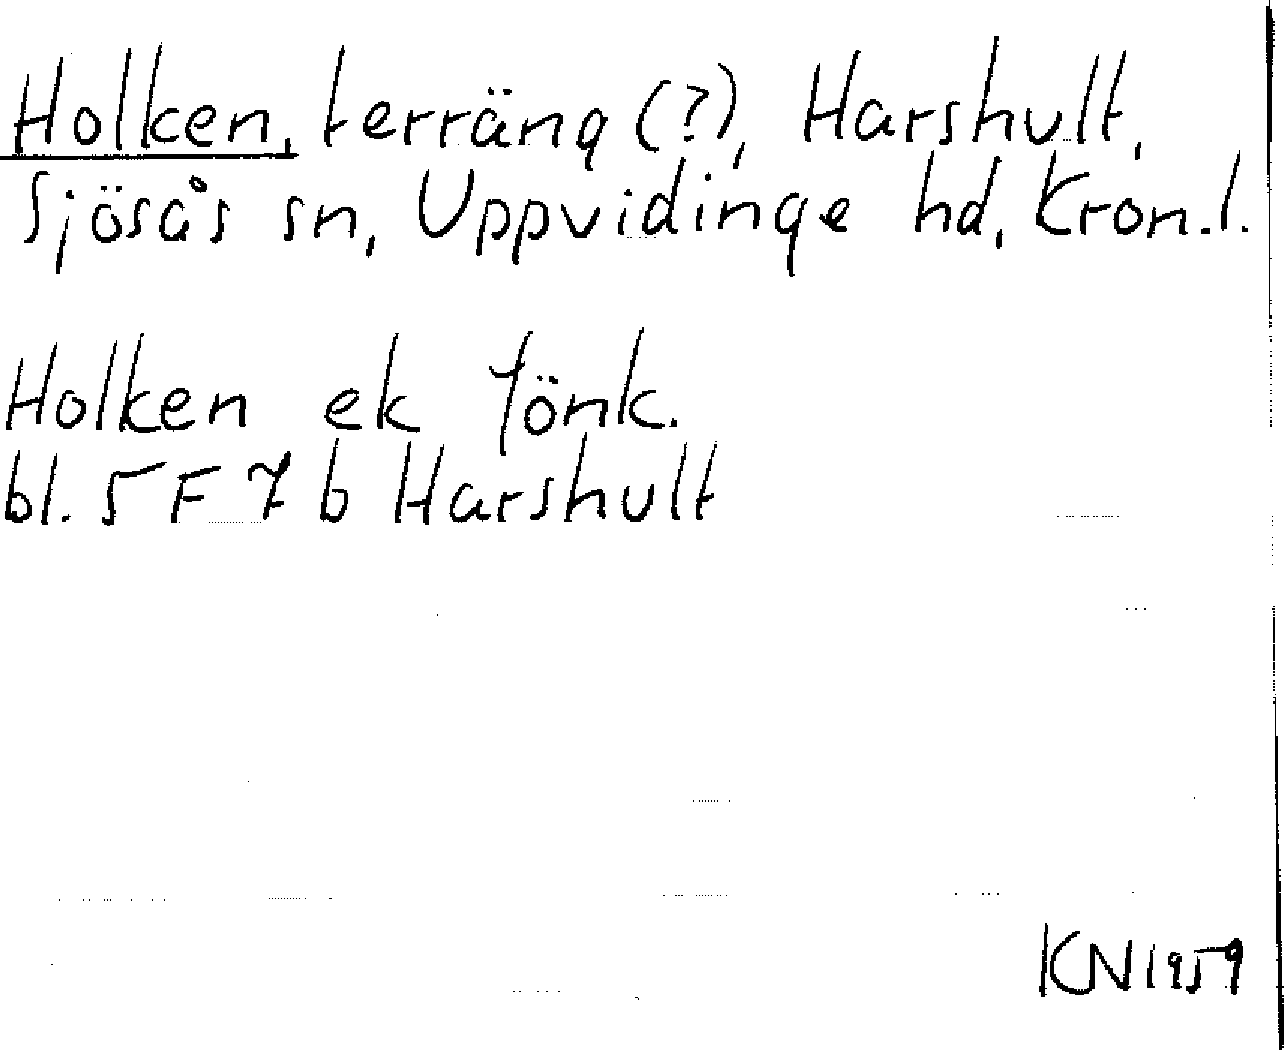 Holken, terräng (?), Harshult,
Sjösås sn, Uppvidinge hd, Kron.l.
Holken ek Jönk.
bl. 5 F 7 b Harshult
KN 1959